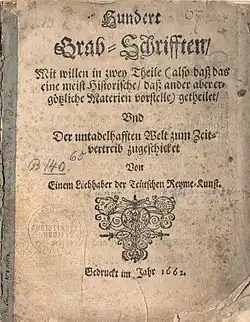 Hundert
Grab-Schrifften/
Mit willen in zwey Theile (also daß das
eine meist Historische/ daß ander aber er-
götzliche Materien vorstelle) getheilet/
Vnd
Der untadelhafften Welt zum Zeit-
vertreib zugeschicket
B 140.65
Von
Einem Liebhaber der Teutschen Reyme-Kunst.
Gedruckt im Jahr 1662.